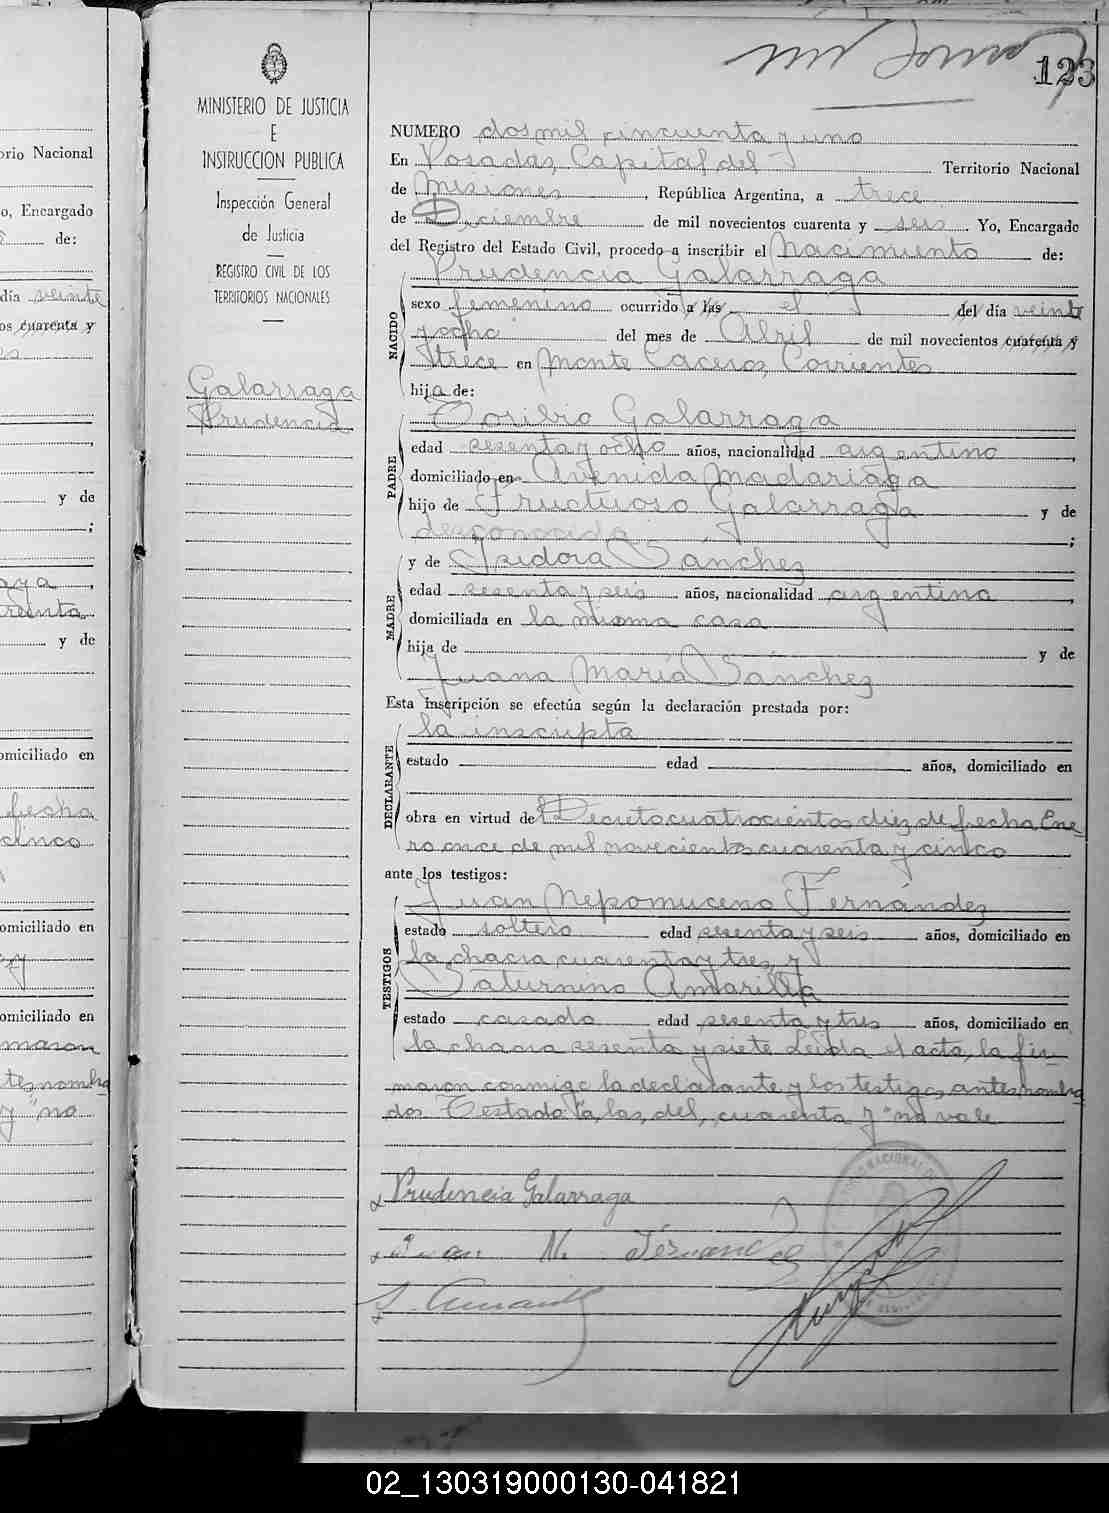 123
MINISTERIO DE JUSTICIA
E
INSTRUCCION PUBLICA
Inspección General
de Justicia
REGISTRO CIVIL DE LOS
TERRITORIOS NACIONALES
Galarraga
Prudencia
NUMERO dos mil cincuenta y uno
En Posadas, Capital del Territorio Nacional
de Misiones, República Argentina, a trece
de Diciembre de mil novecientos cuarenta y seis. Yo, Encargado
del Registro del Estado Civil, procedo a inscribir el nacimiento de:
Prudencia Galarraga
NACIDO
sexo femenino ocurrido a las el del día veinte
y ocho del mes de Abril de mil novecientos cuarenta y
trece en Monte Caceros, Corrientes
hija de:
Toribio Galarraga
PADRE
edad sesenta y ocho años, nacionalidad argentino,
domiciliado en Avenida Madariaga
hijo de Fructuoso Galarraga y de
desconocida;
y de Isidora Sánchez
MADRE
edad sesenta y seis años, nacionalidad argentina,
domiciliada en la misma casa
hija de y de
Juana María Sánchez
Esta inscripción se efectúa según la declaración prestada por:
la inscripta
DECLARANTE
estado edad años, domiciliado en
obra en virtud del Decreto cuatrocientos diez de fecha Ene-
ro once de mil novecientos cuarenta y cinco
ante los testigos:
Juan Nepomuceno Fernández
TESTIGOS
estado soltero edad sesenta y seis años, domiciliado en
la chacra cuarenta y tres, y
Saturnino Amarilla
estado casado edad sesenta y tres años, domiciliado en
la chacra sesenta y siete Leida el acta, la fir-
maron conmigo la declarante y los testigos antes nombra
dos Testado "a, las, del, cuarenta y" no vale
Prudencia Galarraga
Juan N. Fernandez
S. Amarilla
orio Nacional
o, Encargado
de:
día veinte
os cuarenta y
y de
;
treinta
y de
omiciliado en
fecha
cinco
omiciliado en
omiciliado en
maron
tes nombra
y "no
02_130319000130-041821